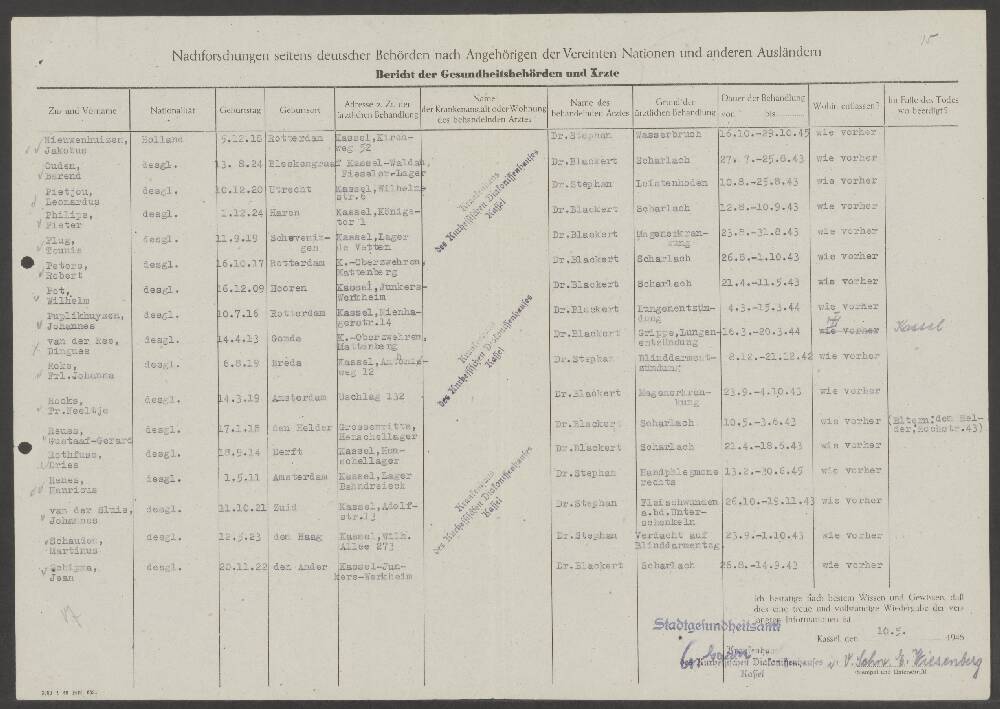 15
Nachforschungen seitens deutscher Behörden nach Angehörigen der Vereinten Nationen und anderen Ausländern
Bericht der Gesundheitsbehörden und Ärzte
Zu- und Vorname Nationalität Geburtstag Geburtsort Adresse z. Zt. der ärztlichen Behandlung Name der Krankenanstalt oder Wohnung des behandelnden Arztes Name des behandelnden Arztes Grund der ärztlichen Behandlung Dauer der Behandlung von bis Wohin entlassen? Im Falle des Todes wo beerdigt?
Nieuwenhuizen, Jakobus Holland 5.12.18 Rotterdam Kassel, weg 52 Dr.Stephan Wasserbruch 16.10.-29.10.45 wie vorher
Ouden, Berend desgl. 13. 8.24 Kassel-Waldau, Fieseler-Lager Dr.Blackert Scharlach 27. 7.-25.8.43 wie vorher
Pietjou, Leonardus desgl. 10.12.20 Utrecht Kassel,Wilhelmstr.6 Dr.Stephan Leistenhoden 10.8.-25.8.43 wie vorher
Philips, Pieter desgl. 1.12.24 Haren Kassel,Königstor 1 Dr.Blackert Scharlach 12.8.-10.9.43 wie vorher
Plug, Teunis desgl. 11.9.19 Scheveningen Kassel,Lager Dr.Blackert Magenerkrankung 23.8.-31.8.43 wie vorher
Peters, Robert desgl. 16.10.17 Rotterdam K.-Oberzwehren, Mattenberg Dr.Blackert Scharlach 26.8.-1.10.43 wie vorher
Pot, Wilhelm desgl. 16.12.09 Hooren Kassel,Junkers-Werkheim Dr.Blackert Scharlach 21.4.-11.5.43 wie vorher
Puplikhuyzen, Johannes desgl. 10.7.16 Rotterdam Kassel,Nienhagerstr.14 Dr.Blackert Lungenentzündung 4.3.-15.3.44 wie vorher
van der Ree, Dingues desgl. 14.4.13 Gouda K.-Oberzwehren, Mattenberg Dr.Blankert Grippe,Lungenentzündung 16.3.-20.3.44 wie vorher Kassel
Roks, Frl.Johanna desgl. 6.8.19 Breda Kassel, weg 12 Dr.Stephan Blinddarmentzündung 8.12.-21.12.42 wie vorher
Rocks, Fr.Neeltje desgl. 14.3.19 Amsterdam Uschlag 132 Dr.Blackert Magenerkrankung 23.9.-4.10.43 wie vorher
Reuss, Gustaaf-Gerard desgl. 17.1.18 den Helder Grossenritte, Henschellager Dr.Blackert Scharlach 10.5.-3.6.43 wie vorher (Eltern:den Helder, 43)
Rothfusz, Dries desgl. 18.9.14 Kassel,Henschellager Dr.Blackert Scharlach 21.4.-18.5.43 wie vorher
Renes, Henricus desgl. 1.5.11 Amsterdam Kassel,Lager Bahndreieck Dr.Stephan Handphlegmone rechts 13.2.-30.6.45 wie vorher
van der Sluis, Johannes desgl. 11.10.21 Zuid Kassel,Adolfstr.13 Dr.Stephan Fleischwunden a.bd.Unterschenkeln 26.10.-19.11.43 wie vorher
Schauden, Martinus desgl. 12.3.23 den Haag Kassel,Wilh. Allee 273 Dr.Stephan Verdacht auf Blinddarmentzg. 23.9.-1.10.43 wie vorher
Schipma, Jean desgl. 20.11.22 den Ander Kassel-Junkers-Werkheim Dr.Blackert Scharlach 26.8.-14.9.43 wie vorher
Krankenhaus
des Kurhessischen Diakonissenhauses
Kassel
Krankenhaus
des Kurhessischen Diakonissenhauses
Kassel
Krankenhaus
des Kurhessischen Diakonissenhauses
Kassel
17
Ich bestätige nach bestem Wissen und Gewissen, daß
dies eine treue und vollständige Wiedergabe der vorhandenen Informationen ist
Stadtgesundheitsamt
Kassel, den 10.5. 1946
Krankenhaus
des Kurhessischen Diakonissenhauses
Kassel
V. Schw. E. Wiesenberg
(Stempel und Unterschrift)